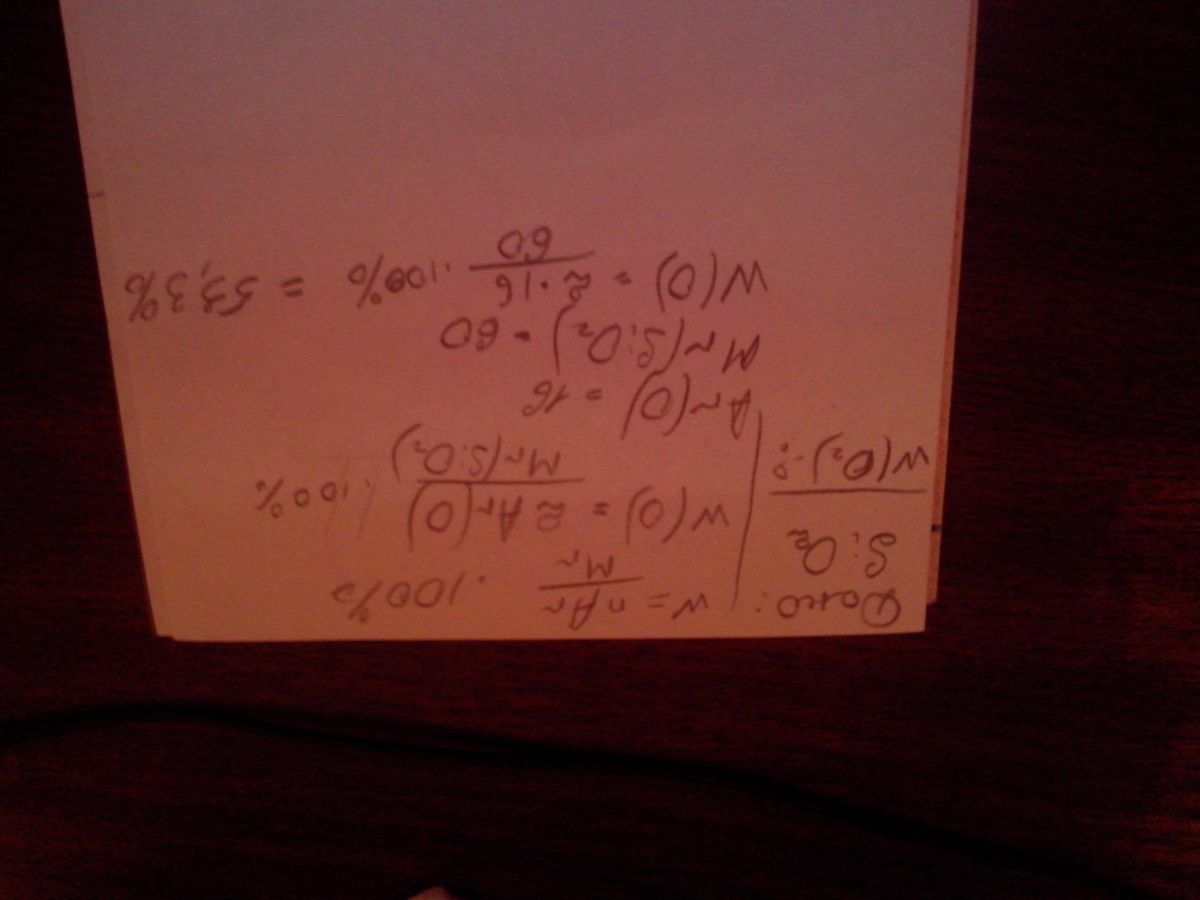 Дано:
SiO₂
W(O₂)-?
W = nAr/Mr · 100%
W(O) = 2Ar(O)/Mr(SiO₂) · 100%
Ar(O) = 16
Mr(SiO₂) = 60
W(O) = 2·16/60 · 100% = 53,3%